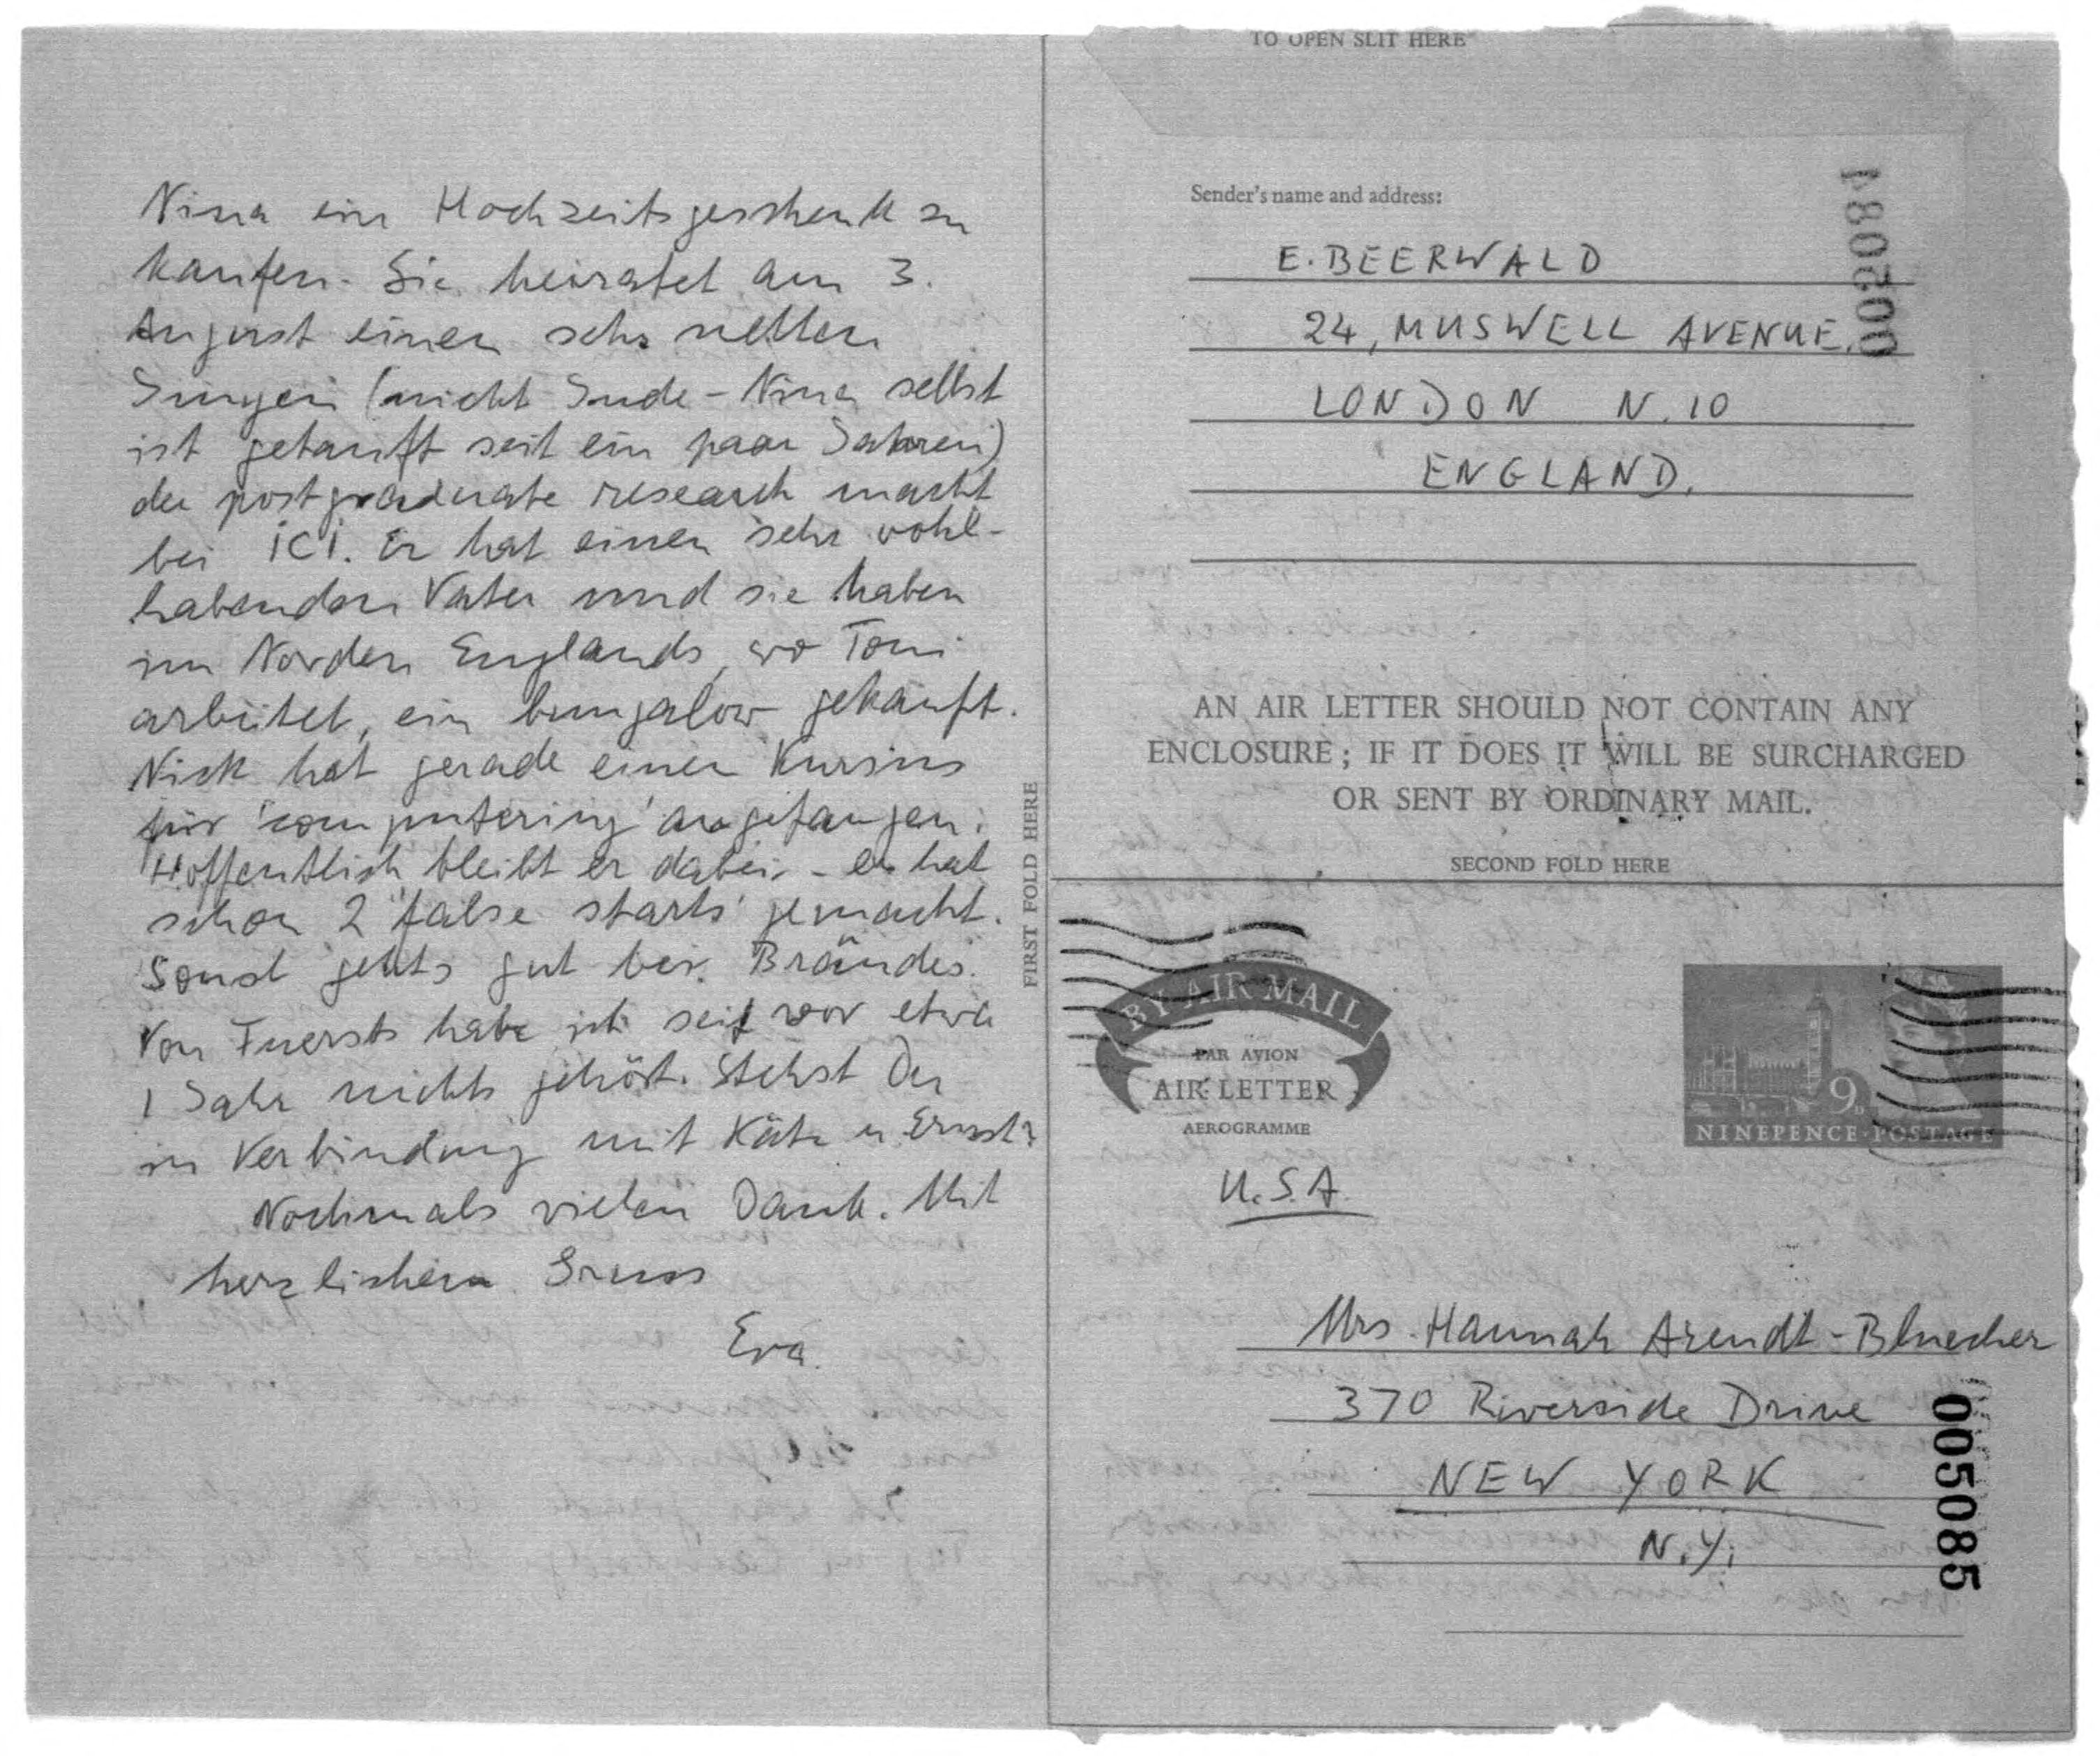 Nina ein Hochzeitsgeschenk zu
kaufen. Sie heiratet am 3.
August einen sehr netten
Jungen (nicht Jude - Nina selbst
ist getauft seit ein paar Jahren)
der postgraduate research macht
bei ICI. Er hat einen sehr wohl-
habenden Vater und sie haben
im Norden Englands, wo Tom
arbeitet, ein bungalow gekauft.
Nick hat gerade einen Kursus
für 'computering' angefangen.
Hoffentlich bleibt er dabei - er hat
schon 2 'false starts' gemacht.
Sonst gehts gut bei Brändes.
Von Fuersts habe ich seit vor etwa
1 Jahr nichts gehört. Stehst Du
in Verbindung mit Käte u Ernst?
Nochmals vielen Dank. Mit
herzlichem Gruss
Eva.
FIRST FOLD HERE
TO OPEN SLIT HERE
Sender's name and address:
E. BEERWALD
24, MUSWELL AVENUE.
LONDON N. 10
ENGLAND.
AN AIR LETTER SHOULD NOT CONTAIN ANY
ENCLOSURE; IF IT DOES IT WILL BE SURCHARGED
OR SENT BY ORDINARY MAIL.
SECOND FOLD HERE
BY AIR MAIL
PAR AVION
AIR LETTER
AEROGRAMME
9D
NINEPENCE·POSTAGE
U.S.A.
Mrs. Hannah Arendt-Bluecher
370 Riverside Drive
NEW YORK
N.Y.
005085